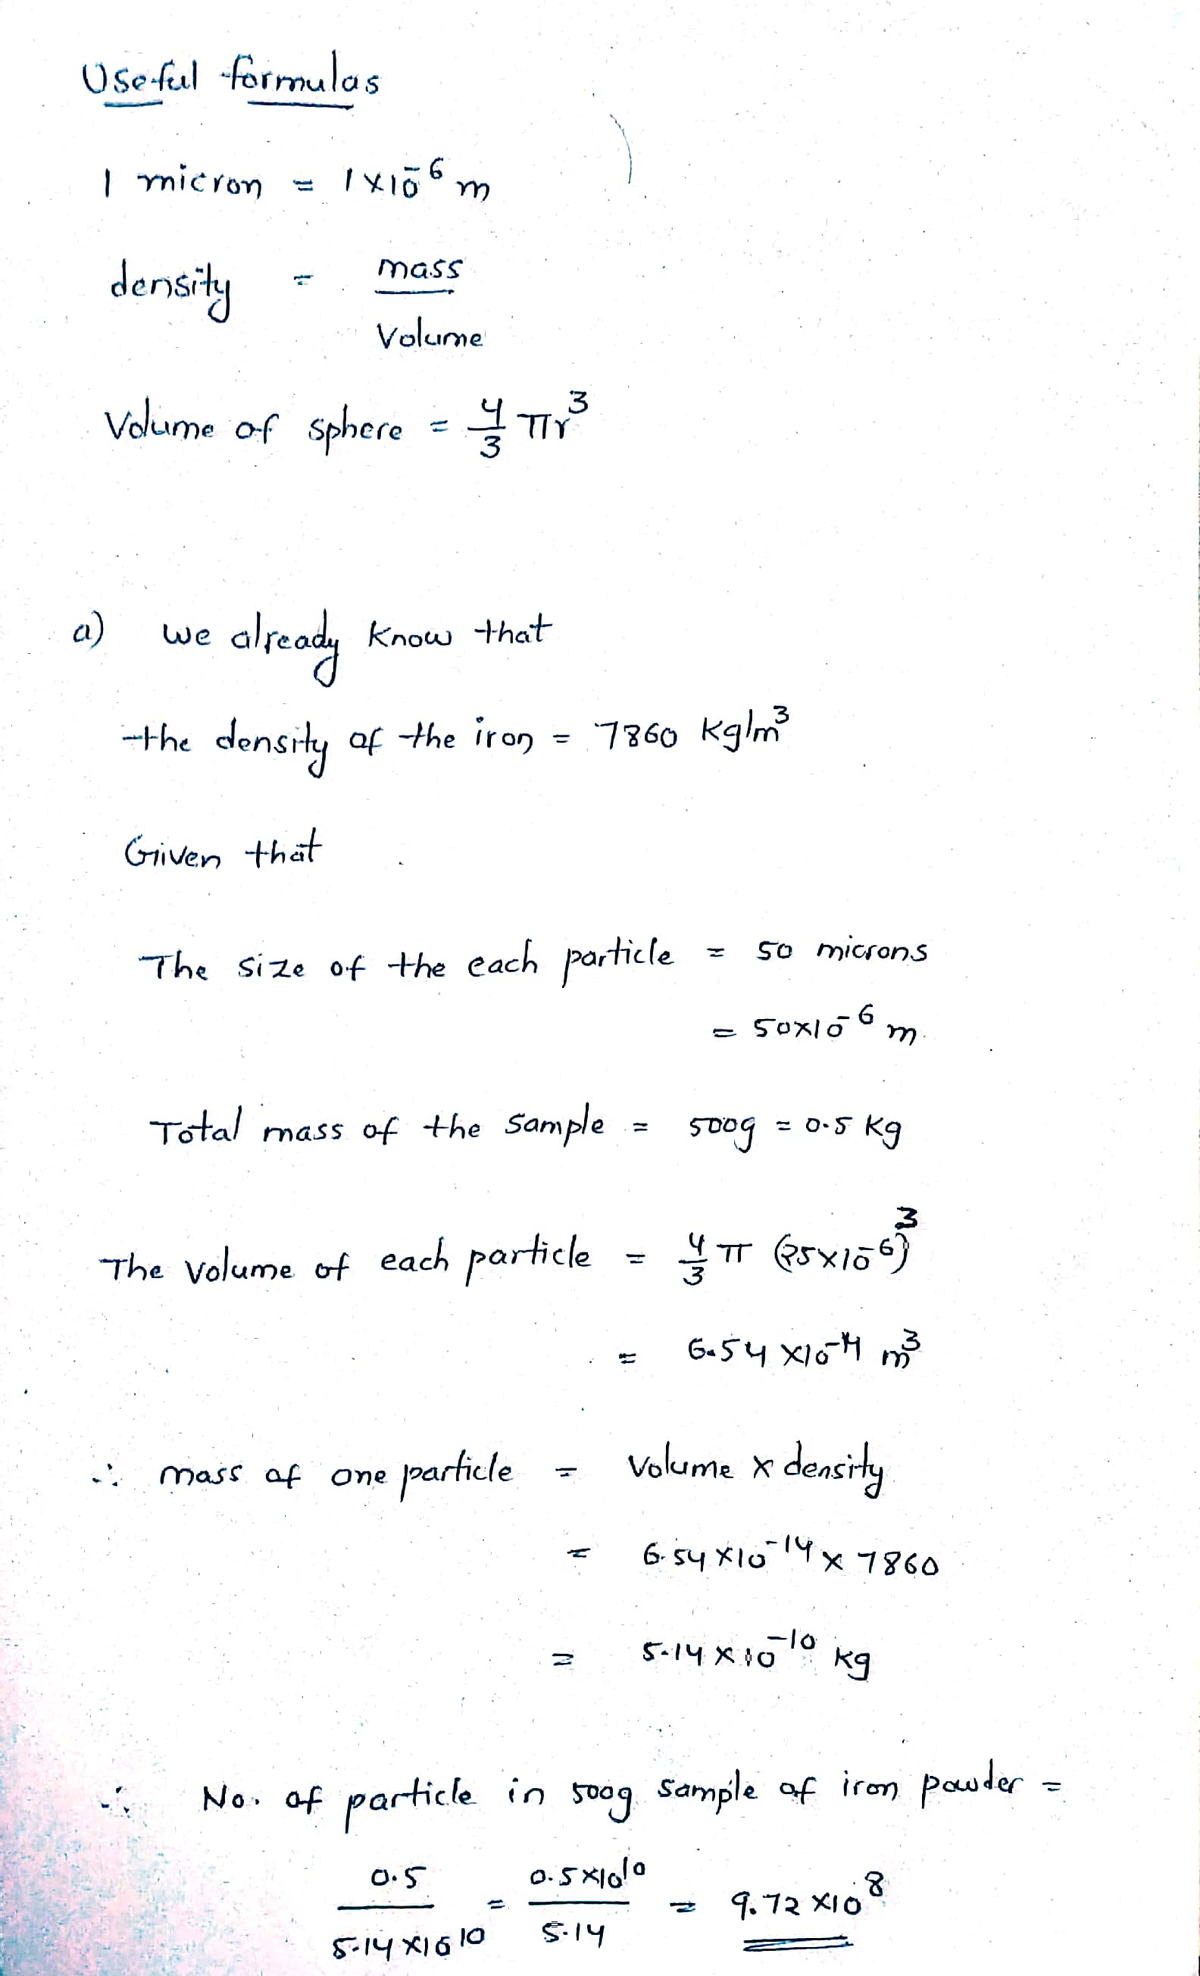 Useful formulas
1 micron = 1×10⁻⁶ m
density = mass / Volume
Volume of sphere = 4/3 πr³
a) we already know that
the density of the iron = 7860 kg/m³
Given that
The size of the each particle = 50 microns
= 50×10⁻⁶ m
Total mass of the sample = 500g = 0.5 kg
The Volume of each particle = 4/3 π (25×10⁻⁶)³
= 6.54 ×10⁻¹⁴ m³
∴ mass of one particle = Volume × density
= 6.54 ×10⁻¹⁴ × 7860
= 5.14 × 10⁻¹⁰ kg
∴ No. of particle in 500g sample of iron powder =
0.5 / 5.14 ×10⁻¹⁰ = 0.5 ×10¹⁰ / 5.14 = 9.72 ×10⁸